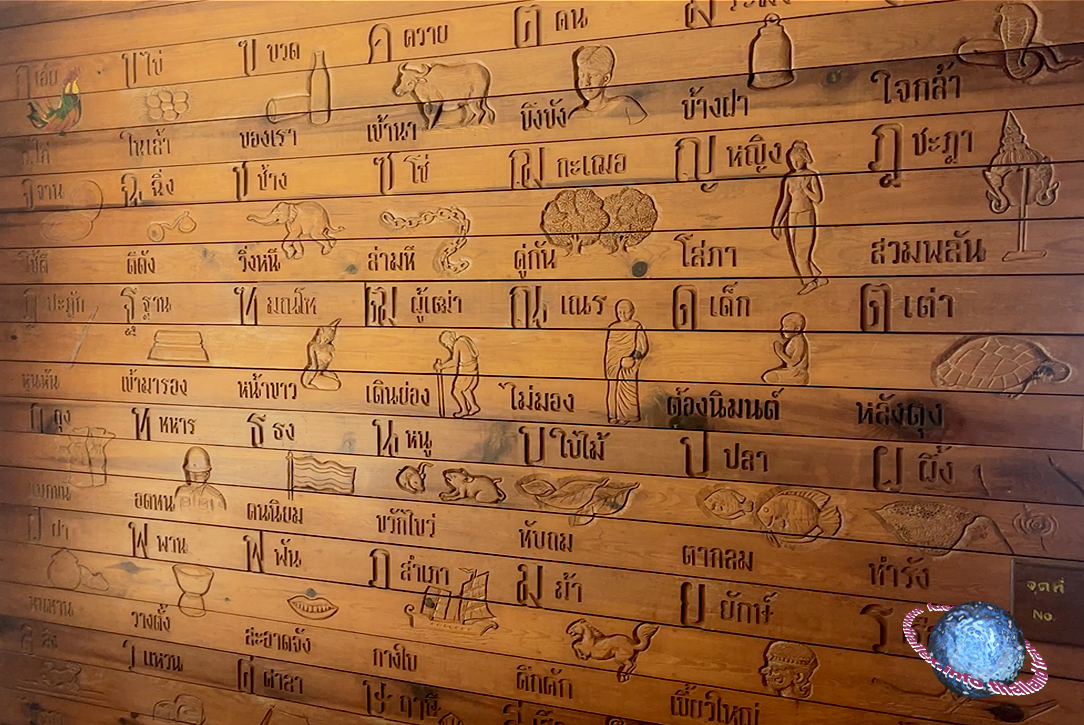 ก เอ๋ย ข ไข่ ฃ ขวด ค ควาย ฅ คน ฆ ระฆัง
ก.ไก่ ในเล้า ของเรา เข้านา ขึงขัง ข้างฝา ใจกล้า
จ จาน ฉ ฉิ่ง ช ช้าง ซ โซ่ ฌ กะเฌอ ญ หญิง ฎ ชะฎา
ใช้ดี ตีดัง วิ่งหนี ล่ามที คู่กัน โสภา สวมพลัน
ฏ ปะฏัก ฐ ฐาน ฑ มณโฑ ฒ ผู้เฒ่า ณ เณร ด เด็ก ต เต่า
หุนหัน เข้ามารอง หน้าขาว เดินย่อง ไม่มอง ต้องนิมนต์ หลังตุง
ถ ถุง ท ทหาร ธ ธง น หนู บ ใบไม้ ป ปลา ผ ผึ้ง
แบกขน อดทน คนนิยม ขวักไขว่ ทับถม ตากลม ทำรัง
ฝ ฝา พ พาน ฟ ฟัน ภ สำเภา ม ม้า ย ยักษ์ ร
ทนทาน วางตั้ง สะอาดจัง กางใบ คึกคัก เขี้ยวใหญ่
ล ลิง ว แหวน ศ ศาลา ษ ฤาษี
จุดที่
No.